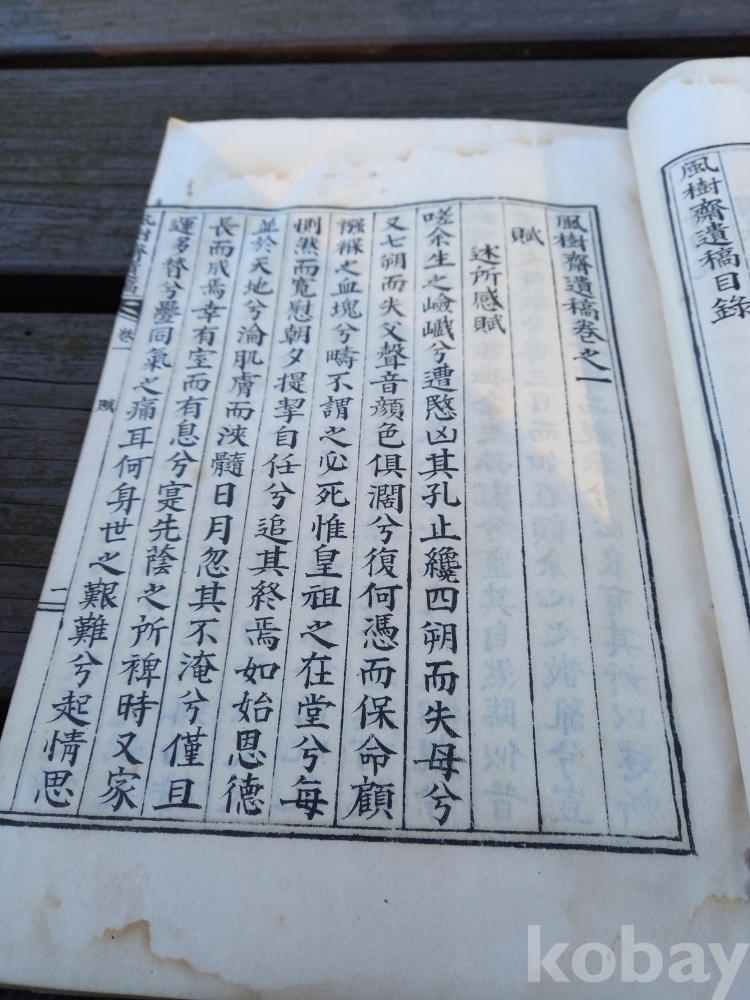 風樹齋遺稿目錄
風樹齋遺稿卷之一
賦
述所感賦
嗟余生之嶮巇兮遭愍凶其孔止纔四朔而失母兮
又七朔而失父聲音顔色俱濶兮復何憑而保命顧
襁褓之血塊兮疇不謂之必死惟皇祖之在堂兮每
惻然而寬慰朝夕提挈自任兮追其終焉如始恩德
並於天地兮淪肌膚而浹髓日月忽其不淹兮僅且
長而成焉幸有室而有息兮寔先蔭之所裨時又家
運多督兮疊同氣之痛耳何身世之艱難兮起情思
卷一
賦
一
kobay